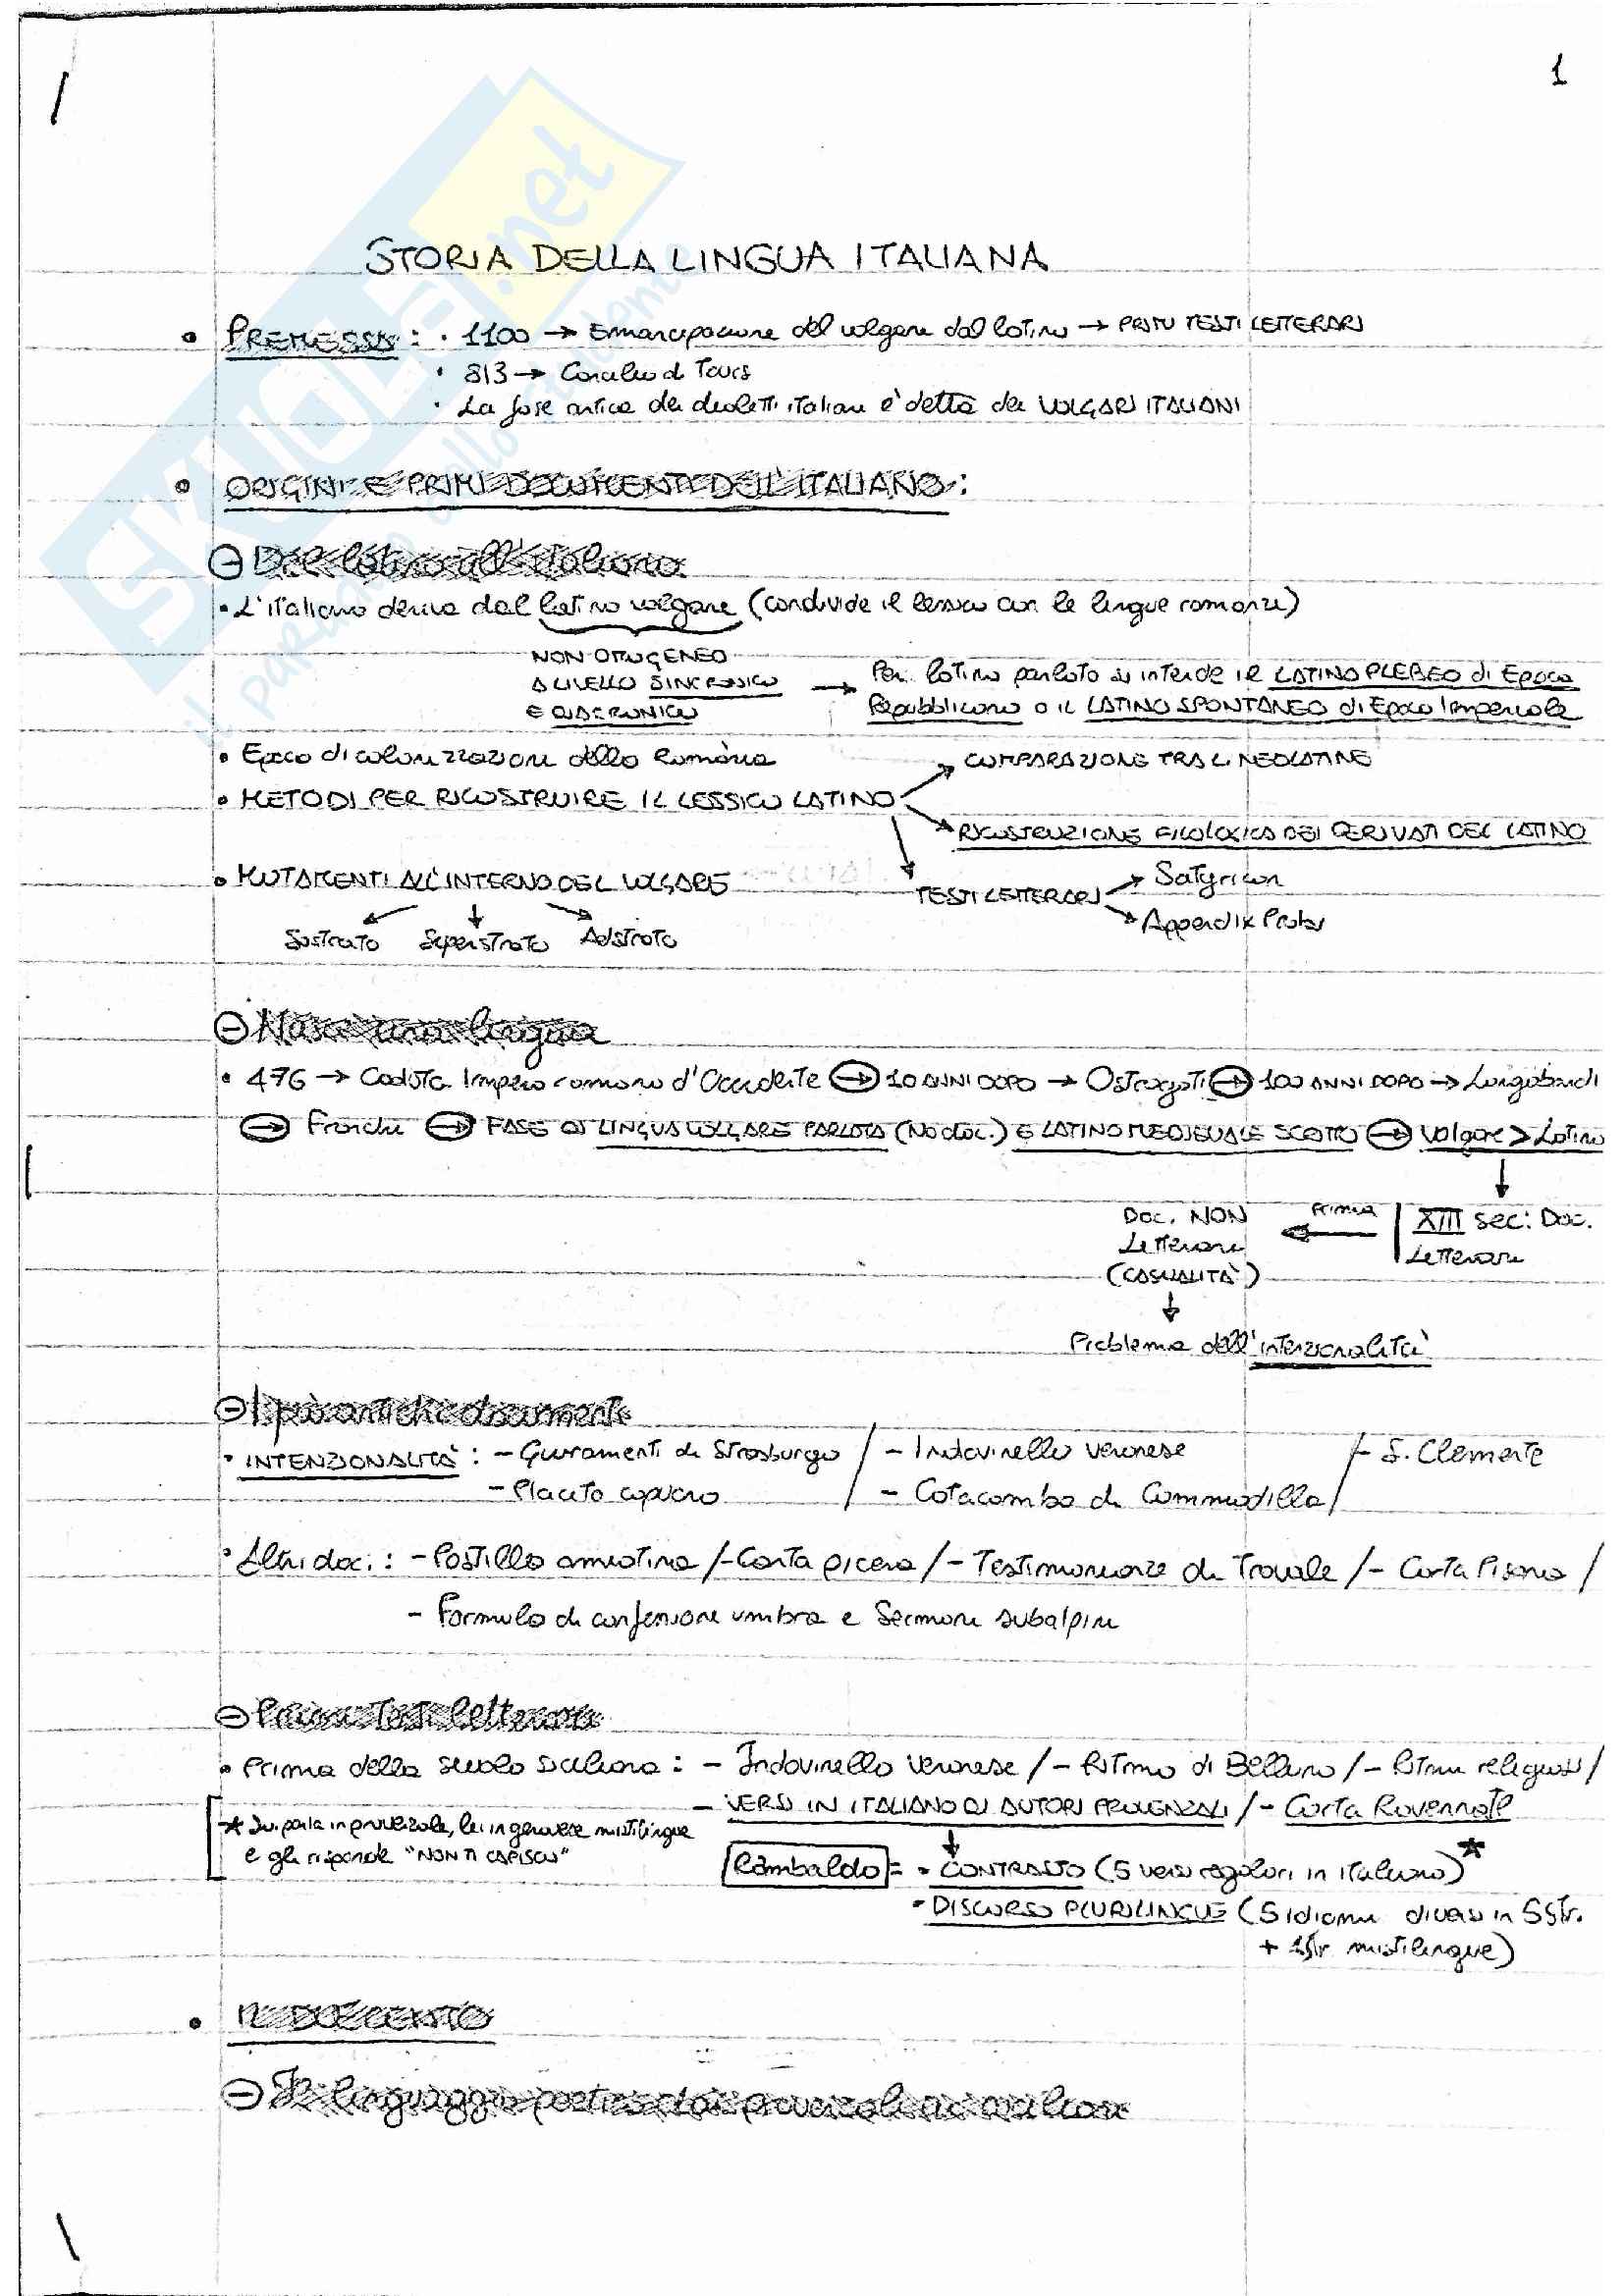 1
STORIA DELLA LINGUA ITALIANA
• PREMESSA : • 1100 → Emancipazione del volgare dal latino → PRIMI TESTI LETTERARI
• 813 → Concilio di Tours
• La fase antica dei dialetti italiani è detta dei VOLGARI ITALIANI
• ORIGINI E PRIMI DOCUMENTI DELL'ITALIANO :
⊖ Dal latino all'italiano
• L'italiano deriva dal latino volgare (condivide il lessico con le lingue romanze)
NON OMOGENEO
A LIVELLO SINCRONICO
E DIACRONICO
→ Per latino parlato si intende il LATINO PLEBEO di Epoca
Repubblicana o il LATINO SPONTANEO di Epoca Imperiale
• Epoca di colonizzazione della Romània
• METODI PER RICOSTRUIRE IL LESSICO LATINO
COMPARAZIONE TRA L. NEOLATINE
RICOSTRUZIONE FILOLOGICA DEI DERIVATI DEL LATINO
TESTI LETTERARI → Satyricon
→ Appendix Probi
• MUTAMENTI ALL'INTERNO DEL VOLGARE
Sostrato Superstrato Adstrato
⊖ Nasce una lingua
• 476 → Caduta Impero romano d'Occidente → 10 ANNI DOPO → Ostrogoti → 100 ANNI DOPO → Longobardi
→ Franchi → FASE DI LINGUA VOLGARE PARLATA (No doc.) E LATINO MEDIEVALE SCRITTO → Volgare > Latino
XIII sec: Doc.
Letterari
prima
Doc. NON
Letterari
(CASUALITÀ)
Problema dell'intenzionalità
⊖ I più antichi documenti
• INTENZIONALITÀ : - Giuramenti di Strasburgo / - Indovinello veronese /- S. Clemente
- Placito capuano / - Catacomba di Commodilla /
• Altri doc. : - Postilla amiatina /- Carta picena /- Testimonianze di Travale /- Carta Pisana /
- Formula di confessione umbra e Sermoni subalpini
⊖ Primi Testi letterari
• Prima della scuola siciliana : - Indovinello Veronese /- Ritmo di Belluno /- Ritmi religiosi /
- VERSI IN ITALIANO DI AUTORI PROVENZALI /- Carta Ravennate
* Lui parla in provenzale, lei in genovese mistilingue
e gli risponde "NON TI CAPISCO"
Rambaldo = • CONTRASTO (5 versi regolari in italiano) *
• DISCORSO PLURILINGUE (5 idiomi diversi in 5 str.
+ 1 str. mistilingue)
• IL DUECENTO
⊖ Il linguaggio poetico dai provenzali ai siciliani
SKUOLA.net
il paradiso dello studente